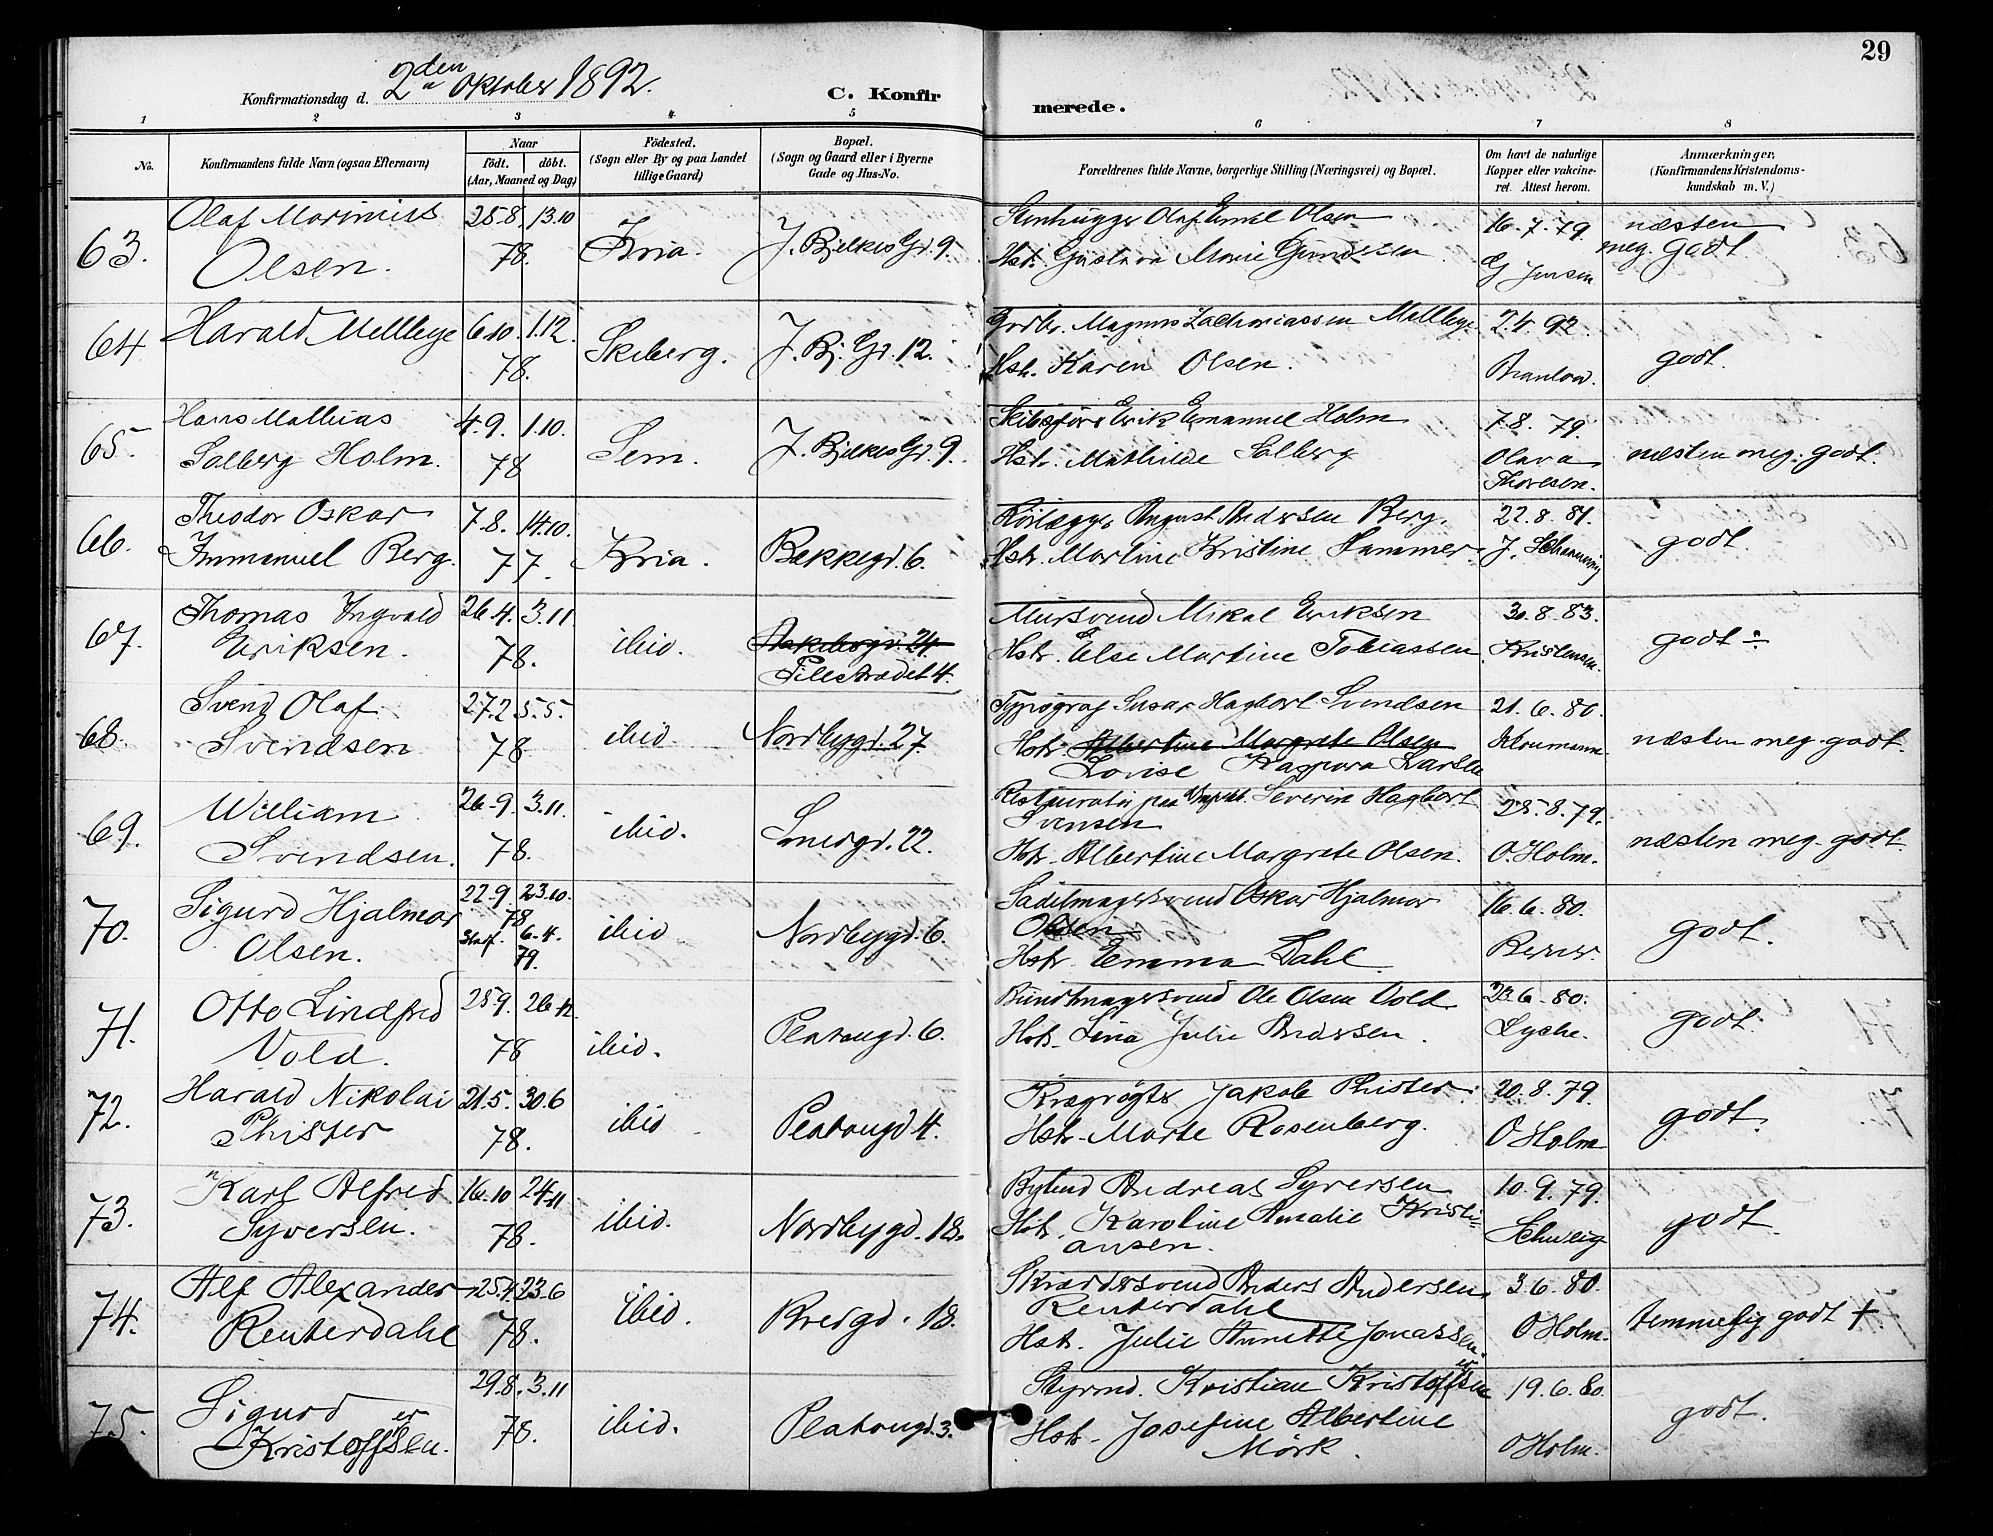 29
Konfirmationsdag d. 2den Oktober 1892.
C. Konfirmerede.
1 2 3 4 5 6 7 8
No.
Konfirmandens fulde Navn (ogsaa Efternavn)
Naar
födt. döbt.
(Aar, Maaned og Dag)
Födested.
(Sogn eller By og paa Landet
tillige Gaard)
Bopæl.
(Sogn og Gaard eller i Byerne
Gade og Hus-No.
Forældrenes fulde Navne, borgerlige Stilling (Næringsvei) og Bopæl.
Om havt de naturlige
Kopper eller vakcine-
ret. Attest herom.
Anmærkninger,
(Konfirmandens Kristendoms-
kundskab m. V.)
63. Olaf Olsen. 25.8. 78. 13.10 Kria. J. Bjelkes Gd. 9.
Stenhugger Olaf Emil Olsen
Hst. Gustava Marie Gundersen
16.7.79. Jensen
næsten
meg. godt.
64 Harald Mellbye 6.10. 1.12. 78. Skeberg. J. Bj. Gd. 12.
Magnus Zachariassen Mellbye
Hst. Karen Olsen.
2.4.92.
godt.
65. Hans Mathias
Solberg Holm. 4.9. 1.10. 78 Sem. J. Bjelkes Gd. 9.
Skibsförer Erik Emanuel Holm
Hst. Mathilde Solberg
7.8.79.
Olava
Thoresen.
næsten meg. godt.
66. Theodor Oskar
Immanuel Berg. 7.8. 14.10. 77. Kria. Bakkegd. 6.
Rörlægger August Andersen Berg.
Hst. Martine Kristine Hammer.
22.8.81.
godt.
67. Thomas Ingvald
Eriksen. 26.4. 3.11 78. ibid. Akersgd. 24
Pilestrædet 4.
Mursvend Mikal Eriksen
Hst. Else Martine Tobiassen
30.8.83.
Kristensen.
godt ÷
68. Svend Olaf
Svendsen 27.2. 5.5. 78 ibid. Nordbygd. 27.
Typograf Hagbart Svendsen
Hst. Albertine Margrete Olsen
Lovise Larsen
21.6.80.
næsten meg. godt.
69. William
Svendsen. 26.9. 3.11. 78. ibid. Smedgd. 22.
Severin Hagbart
Svensen
Hst. Albertine Margrete Olsen.
25.8.79.
O. Holm.
næsten meg. godt.
70. Sigurd Hjalmar
Olsen. 22.9. 23.10. 78
6.4.
79. ibid Nordbygd. 6.
Sadelmagersvend Oskar Hjalmar
Olsen
Hst. Emma Dahl.
16.6.80.
godt.
71. Otto Lindfred
Vold. 25.9. 78 ibid. Platougd. 6.
Buntmagersvend Ole Olsen Vold
Hst. Lina Julie Andersen.
23.6.80.
Lyche.
godt.
72. Harald Nikolai
Phister 21.5. 30.6 78. ibid Platougd. 4.
Kragrögter Jakob Phister.
Hst. Marte Rosenberg.
20.8.79.
O Holm
godt.
73. Karl Alfred
Syversen. 16.10 24.11 78. ibid. Nordbygd. 18.
Bybud Andreas Syversen
Hst. Karoline Amalie Kristi-
ansen.
10.9.79.
godt.
74. Alf Alexander
Renterdahl 25.4. 23.6 78. ibid. Bredgd. 18.
Skrædersvend Anders Andersen
Renterdahl
Hst. Julie Annette Jonassen.
3.6.80.
O Holm.
temmelig godt +.
75. Sigurd
Kristoffersen. 29.8. 3.11 78. ibid. Platougd. 3.
Styrmd. Kristian Kristoffersen
Hst. Josefine Albertine
Mörk.
19.6.80.
O Holm.
godt.